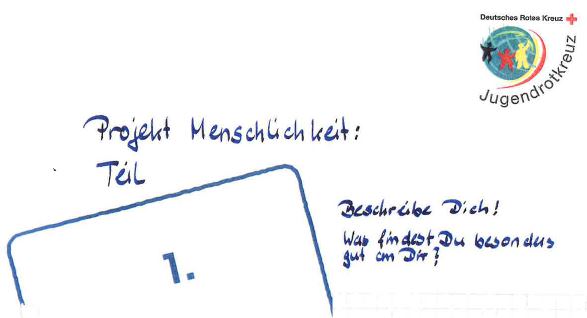 Deutsches Rotes Kreuz
Jugendrotkreuz
Projekt Menschlichkeit:
Teil
1.
Beschreibe Dich!
Was findest Du besonders
gut an Dir?